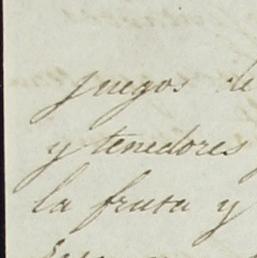 juegos de
y tenedores
la fruta y